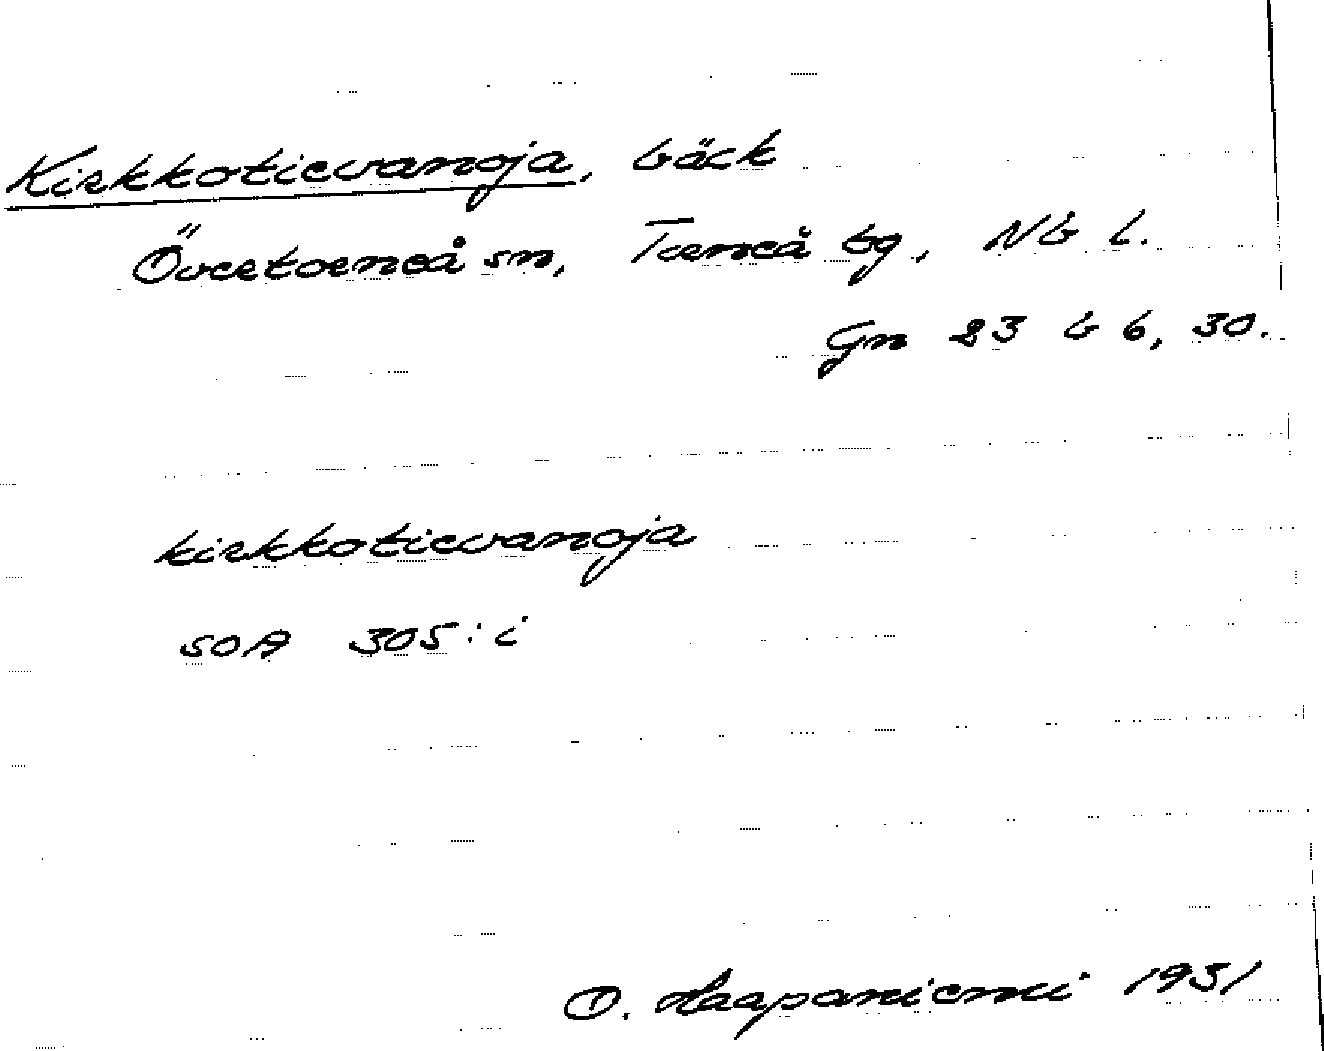 Kirkkotievanoja, bäck
Övertorneå sn, Torneå tg, Nb l.
Gn 23 b 6, 30.
kirkkotievanoja
SOA 305:i
O. Haapaniemi 1931